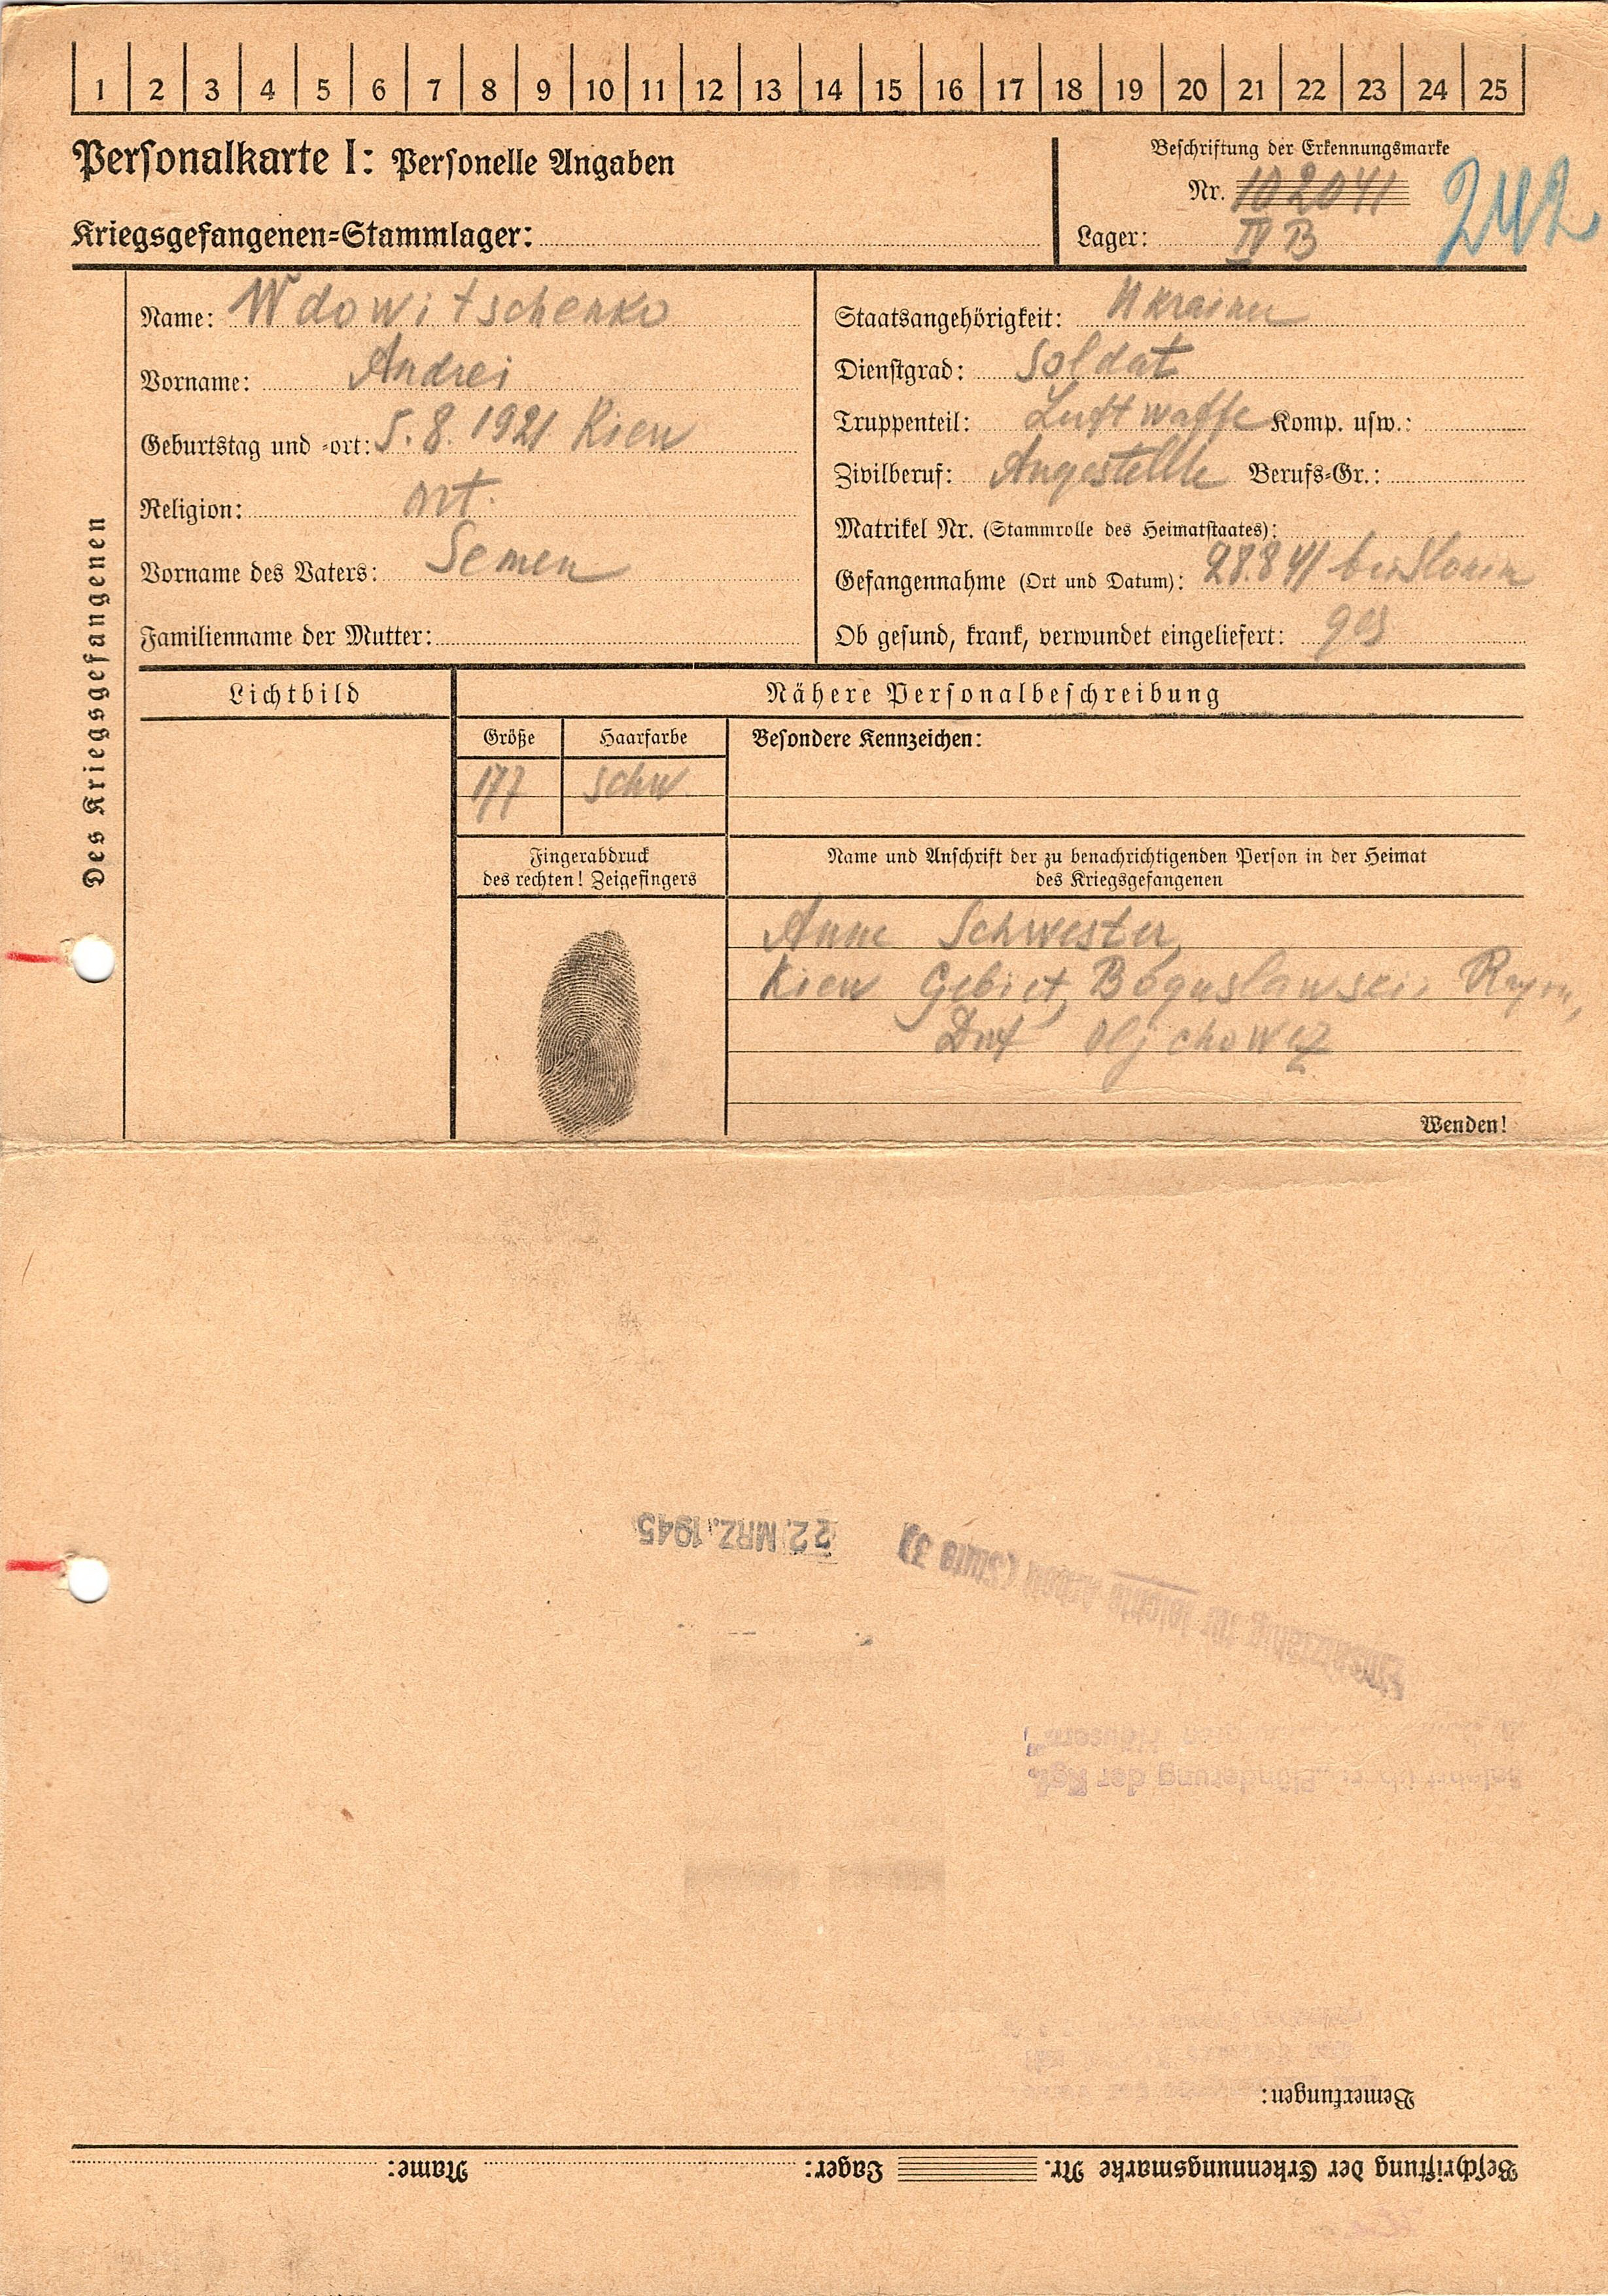 1 2 3 4 5 6 7 8 9 10 11 12 13 14 15 16 17 18 19 20 21 22 23 24 25
Personalkarte I: Personelle Angaben
Kriegsgefangenen=Stammlager:
Beschriftung der Erkennungsmarke
Nr. 102041
Lager: IV B
242
Des Kriegsgefangenen
Name: Wdowitschenko
Vorname: Andrei
Geburtstag und =ort: 5.8.1921 Kiew
Religion: ort.
Vorname des Vaters: Semen
Familienname der Mutter:
Staatsangehörigkeit: Ukrainer
Dienstgrad: Soldat
Truppenteil: Luftwaffe Komp. usw.:
Zivilberuf: Angestellte Berufs=Gr.:
Matrikel Nr. (Stammrolle des Heimatstaates):
Gefangennahme (Ort und Datum): 28.8 41 bei
Ob gesund, krank, verwundet eingeliefert: ges
Lichtbild
Nähere Personalbeschreibung
Größe Haarfarbe Besondere Kennzeichen:
177 schw.
Fingerabdruck
des rechten! Zeigefingers
Name und Anschrift der zu benachrichtigenden Person in der Heimat
des Kriegsgefangenen
Anne Schwester,
Kiew Gebiet, Boguslawsei, Rayon,
Dorf Oljchowez
Wenden!
Beschriftung der Erkennungsmarke Nr. Lager: Name:
Bemerkungen:
"Plünderung der Kgf.
Häusern"
Einsatzfähig für leichte Arbeit (Stufe 3)
22. MRZ. 1945